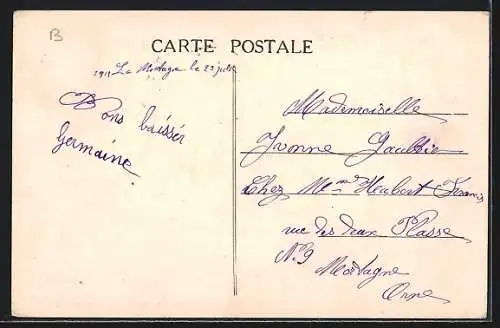 B
CARTE POSTALE
1911 La Mortagne le 23 juillet
Bons baissér
Germaine
Mademoiselle
Yvonne Gaultier
Chez Mme Heubert Francis
rue des deux Plasse
N. 9
Mortagne
Orne